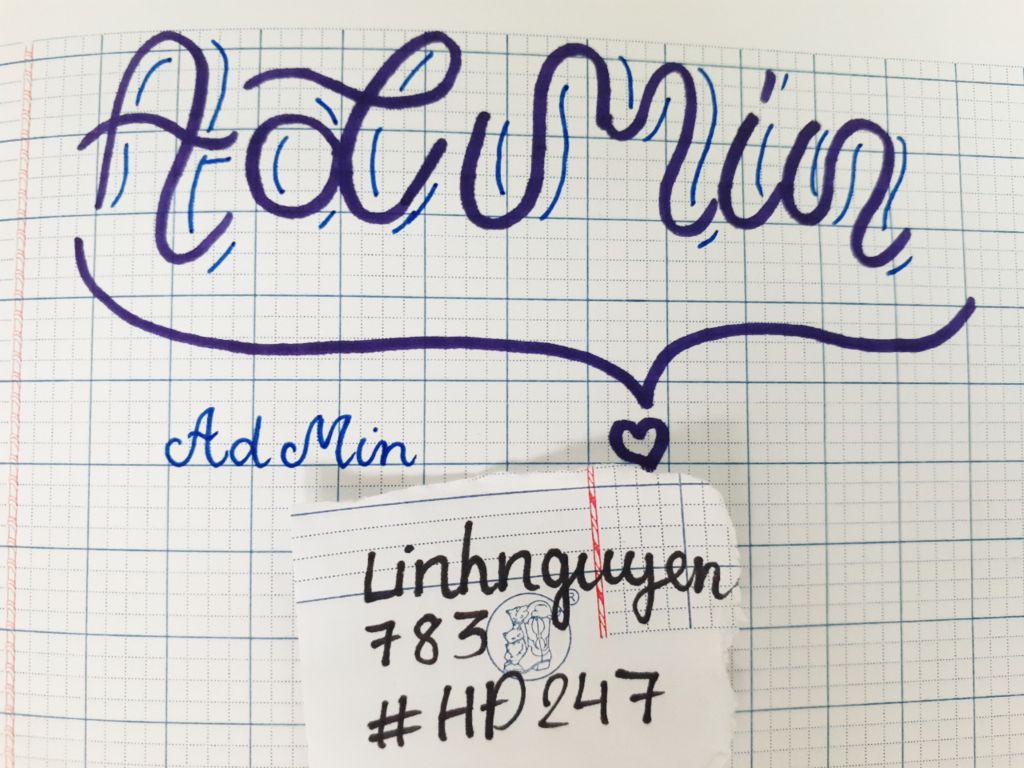 Ad Min
Ad Min
Linhnguyen
783
#HĐ247